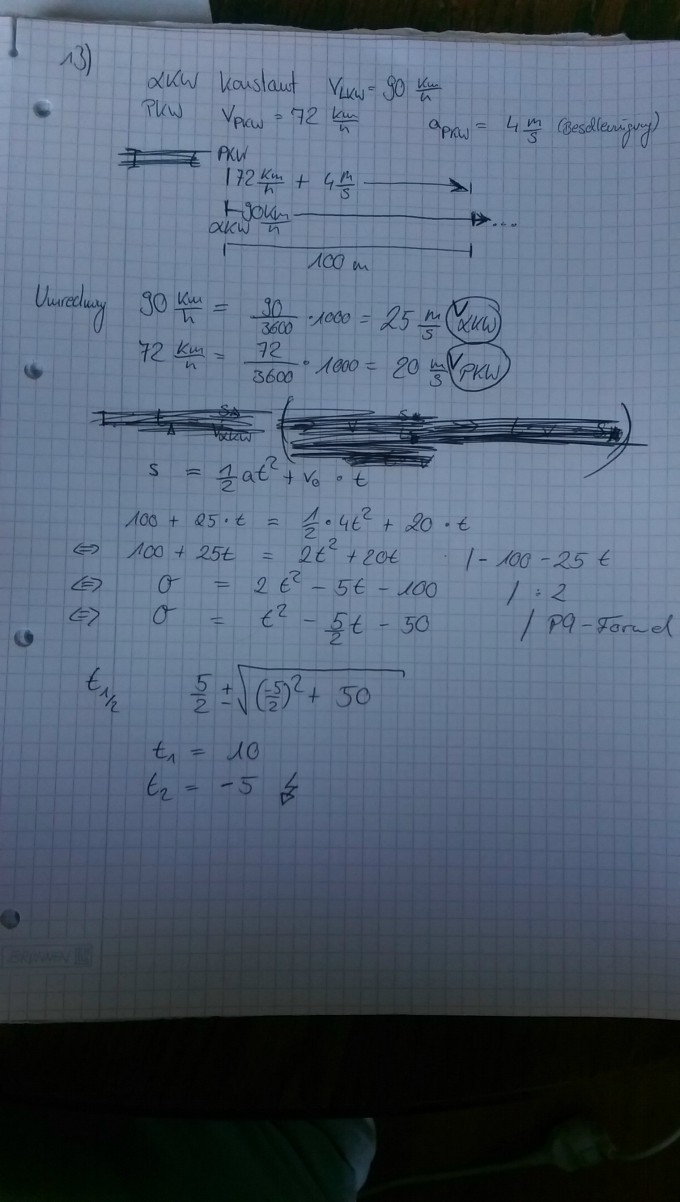 13)
LKW Konstant V_LKW = 90 km/h
PKW V_PKW = 72 km/h a_PKW = 4 m/s (Beschleunigung)
PKW
72 km/h + 4 m/s
90 km/h ...
LKW
100 m
Umrechnung 90 km/h = 90/3600 · 1000 = 25 m/s V_LKW
72 km/h = 72/3600 · 1000 = 20 m/s V_PKW
s = 1/2 at² + v₀ · t
100 + 25 · t = 1/2 · 4t² + 20 · t
⇔ 100 + 25t = 2t² + 20t | - 100 - 25 t
⇔ 0 = 2t² - 5t - 100 | : 2
⇔ 0 = t² - 5/2 t - 50 | PQ-Formel
t₁/₂ 5/2 ± √((-5/2)² + 50)
t₁ = 10
t₂ = -5 ↯